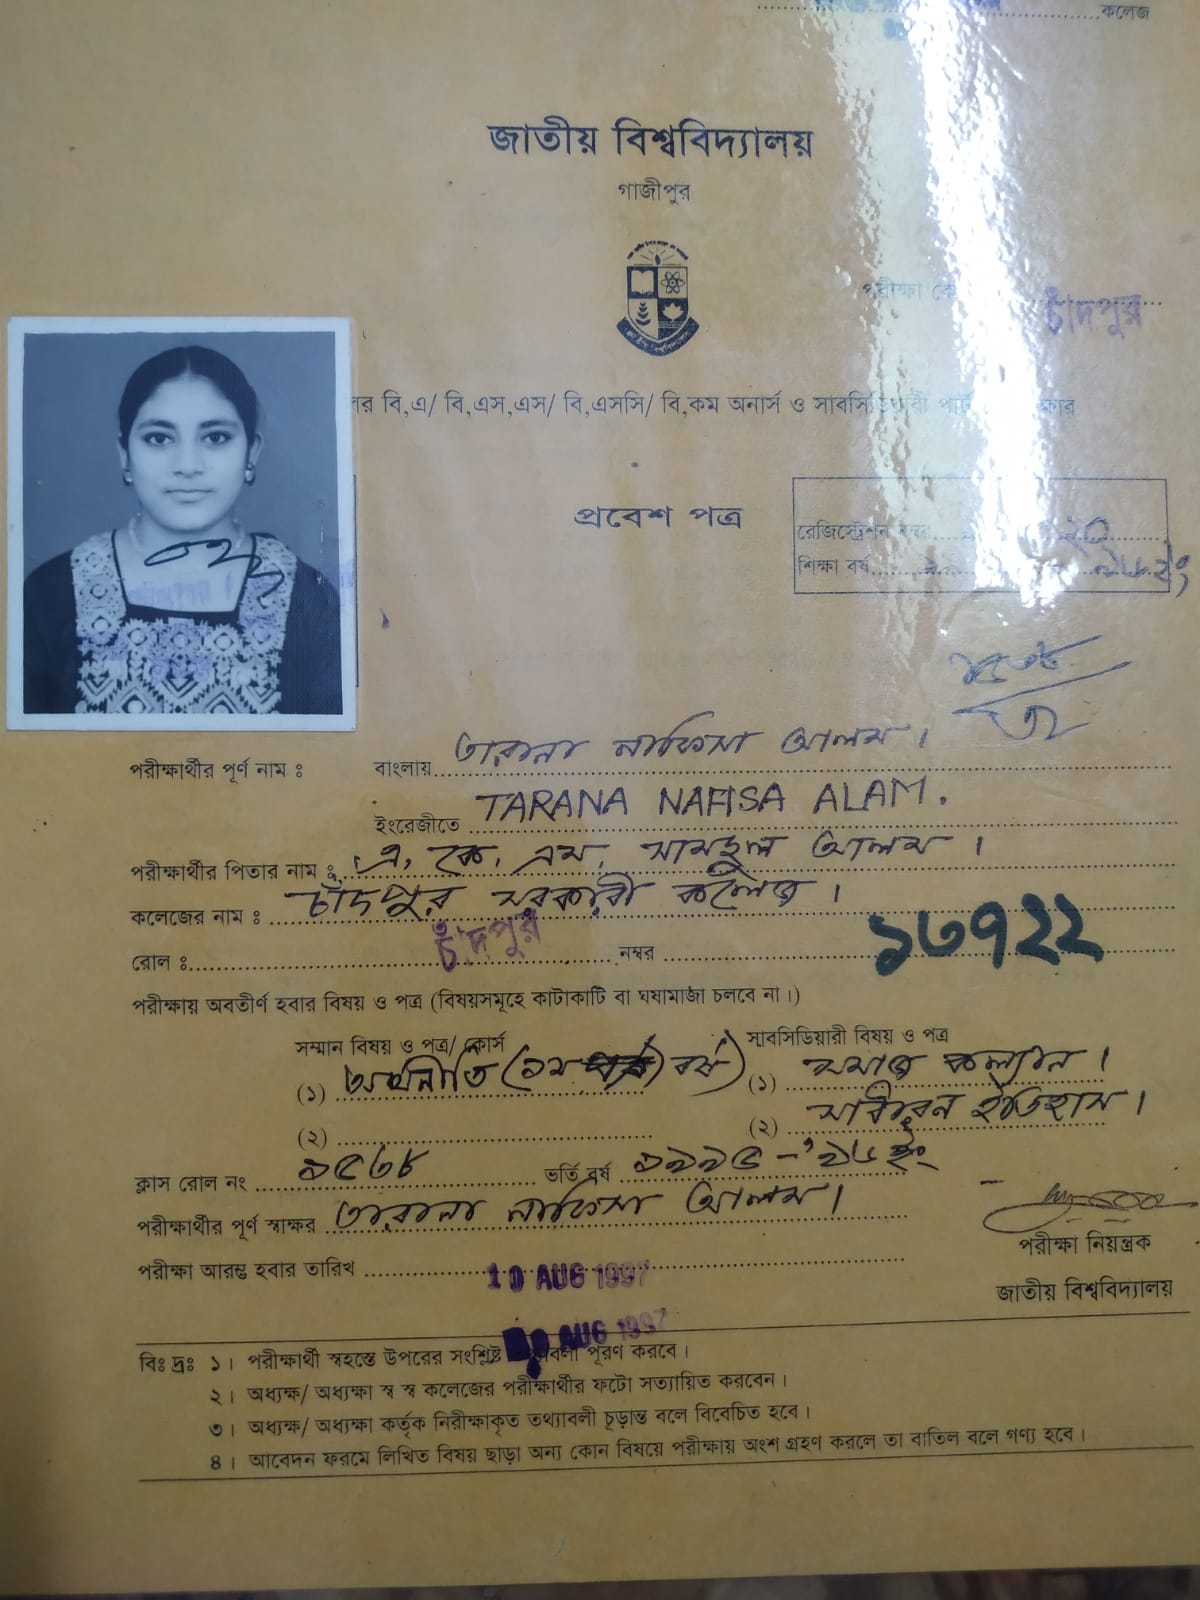 কলেজ
জাতীয় বিশ্ববিদ্যালয়
গাজীপুর
পরীক্ষা কে চাঁদপুর
লের বি,এ/ বি,এস,এস/ বি,এসসি/ বি,কম অনার্স ও সাবসিডিয়ারী
প্রবেশ পত্র
রেজিস্ট্রেশন নম্বর
শিক্ষা বর্ষ
পরীক্ষার্থীর পূর্ণ নাম ঃ বাংলায় তারানা নাফিসা আলম।
ইংরেজীতে TARANA NAFISA ALAM.
পরীক্ষার্থীর পিতার নাম ঃ এ, কে, এম, সামছুল আলম।
কলেজের নাম ঃ চাঁদপুর সরকারী কলেজ।
রোল ঃ চাঁদপুর নম্বর ১৩৭২২
পরীক্ষায় অবতীর্ণ হবার বিষয় ও পত্র (বিষয়সমূহে কাটাকাটি বা ঘষামাজা চলবে না।)
সম্মান বিষয় ও পত্র/ কোর্স সাবসিডিয়ারী বিষয় ও পত্র
(১) অর্থনীতি (১ম বর্ষ) (১) সমাজ কল্যান।
(২) (২) সাধারন ইতিহাস।
ক্লাস রোল নং ১৫৩৮ ভর্তি বর্ষ ১৯৯৫-'৯৬ ইং
পরীক্ষার্থীর পূর্ণ স্বাক্ষর তারানা নাফিসা আলম।
পরীক্ষা নিয়ন্ত্রক
পরীক্ষা আরম্ভ হবার তারিখ 10 AUG 1997
জাতীয় বিশ্ববিদ্যালয়
AUG 1997
বিঃ দ্রঃ ১। পরীক্ষার্থী স্বহস্তে উপরের সংশ্লিষ্ট পূরণ করবে।
২। অধ্যক্ষ/ অধ্যক্ষা স্ব স্ব কলেজের পরীক্ষার্থীর ফটো সত্যায়িত করবেন।
৩। অধ্যক্ষ/ অধ্যক্ষা কর্তৃক নিরীক্ষাকৃত তথ্যাবলী চূড়ান্ত বলে বিবেচিত হবে।
৪। আবেদন ফরমে লিখিত বিষয় ছাড়া অন্য কোন বিষয়ে পরীক্ষায় অংশ গ্রহণ করলে তা বাতিল বলে গণ্য হবে।